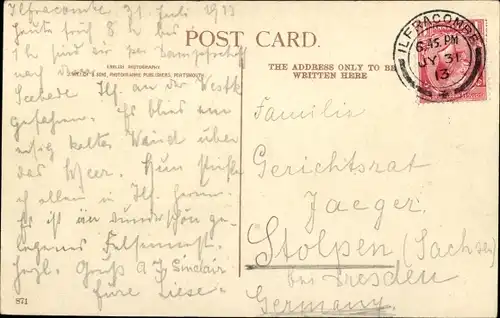 Ilfracombe, 31. Juli 1913
Heute früh 8 h bis
1 h sind wir per Dampfschiff
nach dem
Seebade Ilf. an der Westk
gefahren. Es blies ein
eisig kalter Wind über
das Meer. Nun
ich allein in Ilf. herum.
Es ist ein wunderschön ge-
legenes Felsennest.
herzl. Gruß A J. Sinclair
Eure Liese.
871
POST CARD.
ENGLISH PHOTOGRAPHY
& SONS, PHOTOGRAPHIC PUBLISHERS, PORTSMOUTH
THE ADDRESS ONLY TO BE
WRITTEN HERE
ILFRACOMBE
6.45 PM
JY 31
13
Familie
Gerichtsrat
Jaeger
Stolpen (Sachsen
bei Dresden
Germany.